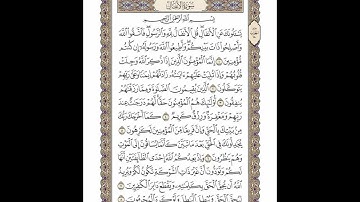 سُورَةُ الأَنفَالِ
بِسْمِ ٱللَّهِ ٱلرَّحْمَٰنِ ٱلرَّحِيمِ
يَسْـَٔلُونَكَ عَنِ ٱلْأَنفَالِ قُلِ ٱلْأَنفَالُ لِلَّهِ وَٱلرَّسُولِ فَٱتَّقُوا۟ ٱللَّهَ
وَأَصْلِحُوا۟ ذَاتَ بَيْنِكُمْ وَأَطِيعُوا۟ ٱللَّهَ وَرَسُولَهُۥٓ إِن كُنتُم
مُّؤْمِنِينَ ١ إِنَّمَا ٱلْمُؤْمِنُونَ ٱلَّذِينَ إِذَا ذُكِرَ ٱللَّهُ وَجِلَتْ
قُلُوبُهُمْ وَإِذَا تُلِيَتْ عَلَيْهِمْ ءَايَٰتُهُۥ زَادَتْهُمْ إِيمَٰنًا وَعَلَىٰ رَبِّهِمْ
يَتَوَكَّلُونَ ٢ ٱلَّذِينَ يُقِيمُونَ ٱلصَّلَوٰةَ وَمِمَّا رَزَقْنَٰهُمْ
يُنفِقُونَ ٣ أُو۟لَٰٓئِكَ هُمُ ٱلْمُؤْمِنُونَ حَقًّا لَّهُمْ دَرَجَٰتٌ عِندَ
رَبِّهِمْ وَمَغْفِرَةٌ وَرِزْقٌ كَرِيمٌ ٤ كَمَآ أَخْرَجَكَ رَبُّكَ
مِنۢ بَيْتِكَ بِٱلْحَقِّ وَإِنَّ فَرِيقًا مِّنَ ٱلْمُؤْمِنِينَ لَكَٰرِهُونَ ٥
يُجَٰدِلُونَكَ فِى ٱلْحَقِّ بَعْدَ مَا تَبَيَّنَ كَأَنَّمَا يُسَاقُونَ إِلَى ٱلْمَوْتِ
وَهُمْ يَنظُرُونَ ٦ وَإِذْ يَعِدُكُمُ ٱللَّهُ إِحْدَى ٱلطَّآئِفَتَيْنِ أَنَّهَا
لَكُمْ وَتَوَدُّونَ أَنَّ غَيْرَ ذَاتِ ٱلشَّوْكَةِ تَكُونُ لَكُمْ وَيُرِيدُ
ٱللَّهُ أَن يُحِقَّ ٱلْحَقَّ بِكَلِمَٰتِهِۦ وَيَقْطَعَ دَابِرَ ٱلْكَٰفِرِينَ ٧
لِيُحِقَّ ٱلْحَقَّ وَيُبْطِلَ ٱلْبَٰطِلَ وَلَوْ كَرِهَ ٱلْمُجْرِمُونَ ٨